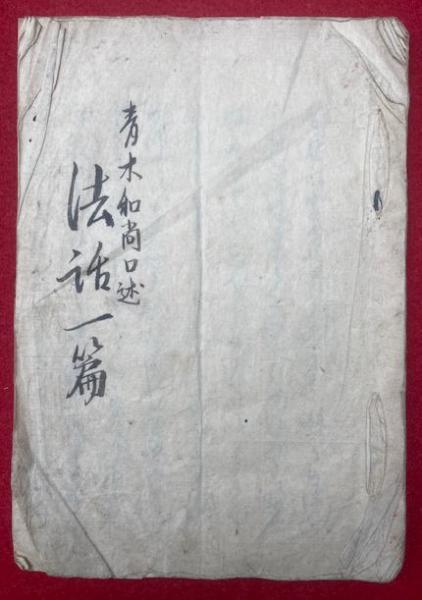 青木和尚口述
法话一篇